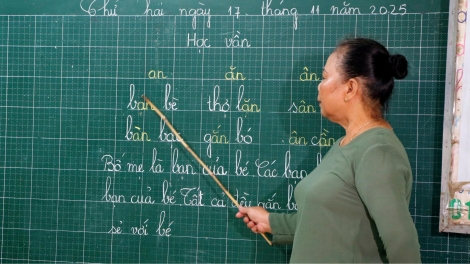 Thứ hai ngày 17 tháng 11 năm 2025
Học vần
an ăn ân
bạn bè thợ lặn sân
bàn bạc gắn bó ân cần
Bố mẹ là bạn của bé. Các bạn
bạn của bé Tất cả đều gắn b
sẻ với bé